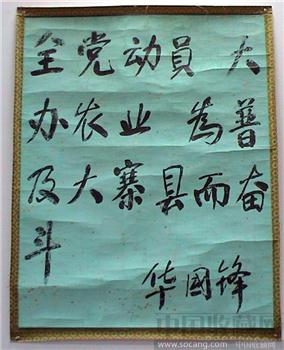 全党动員 大
办农业 为普
及大寨县而奋
斗
华國锋
中国收藏网
www.socang.com 中国收藏网